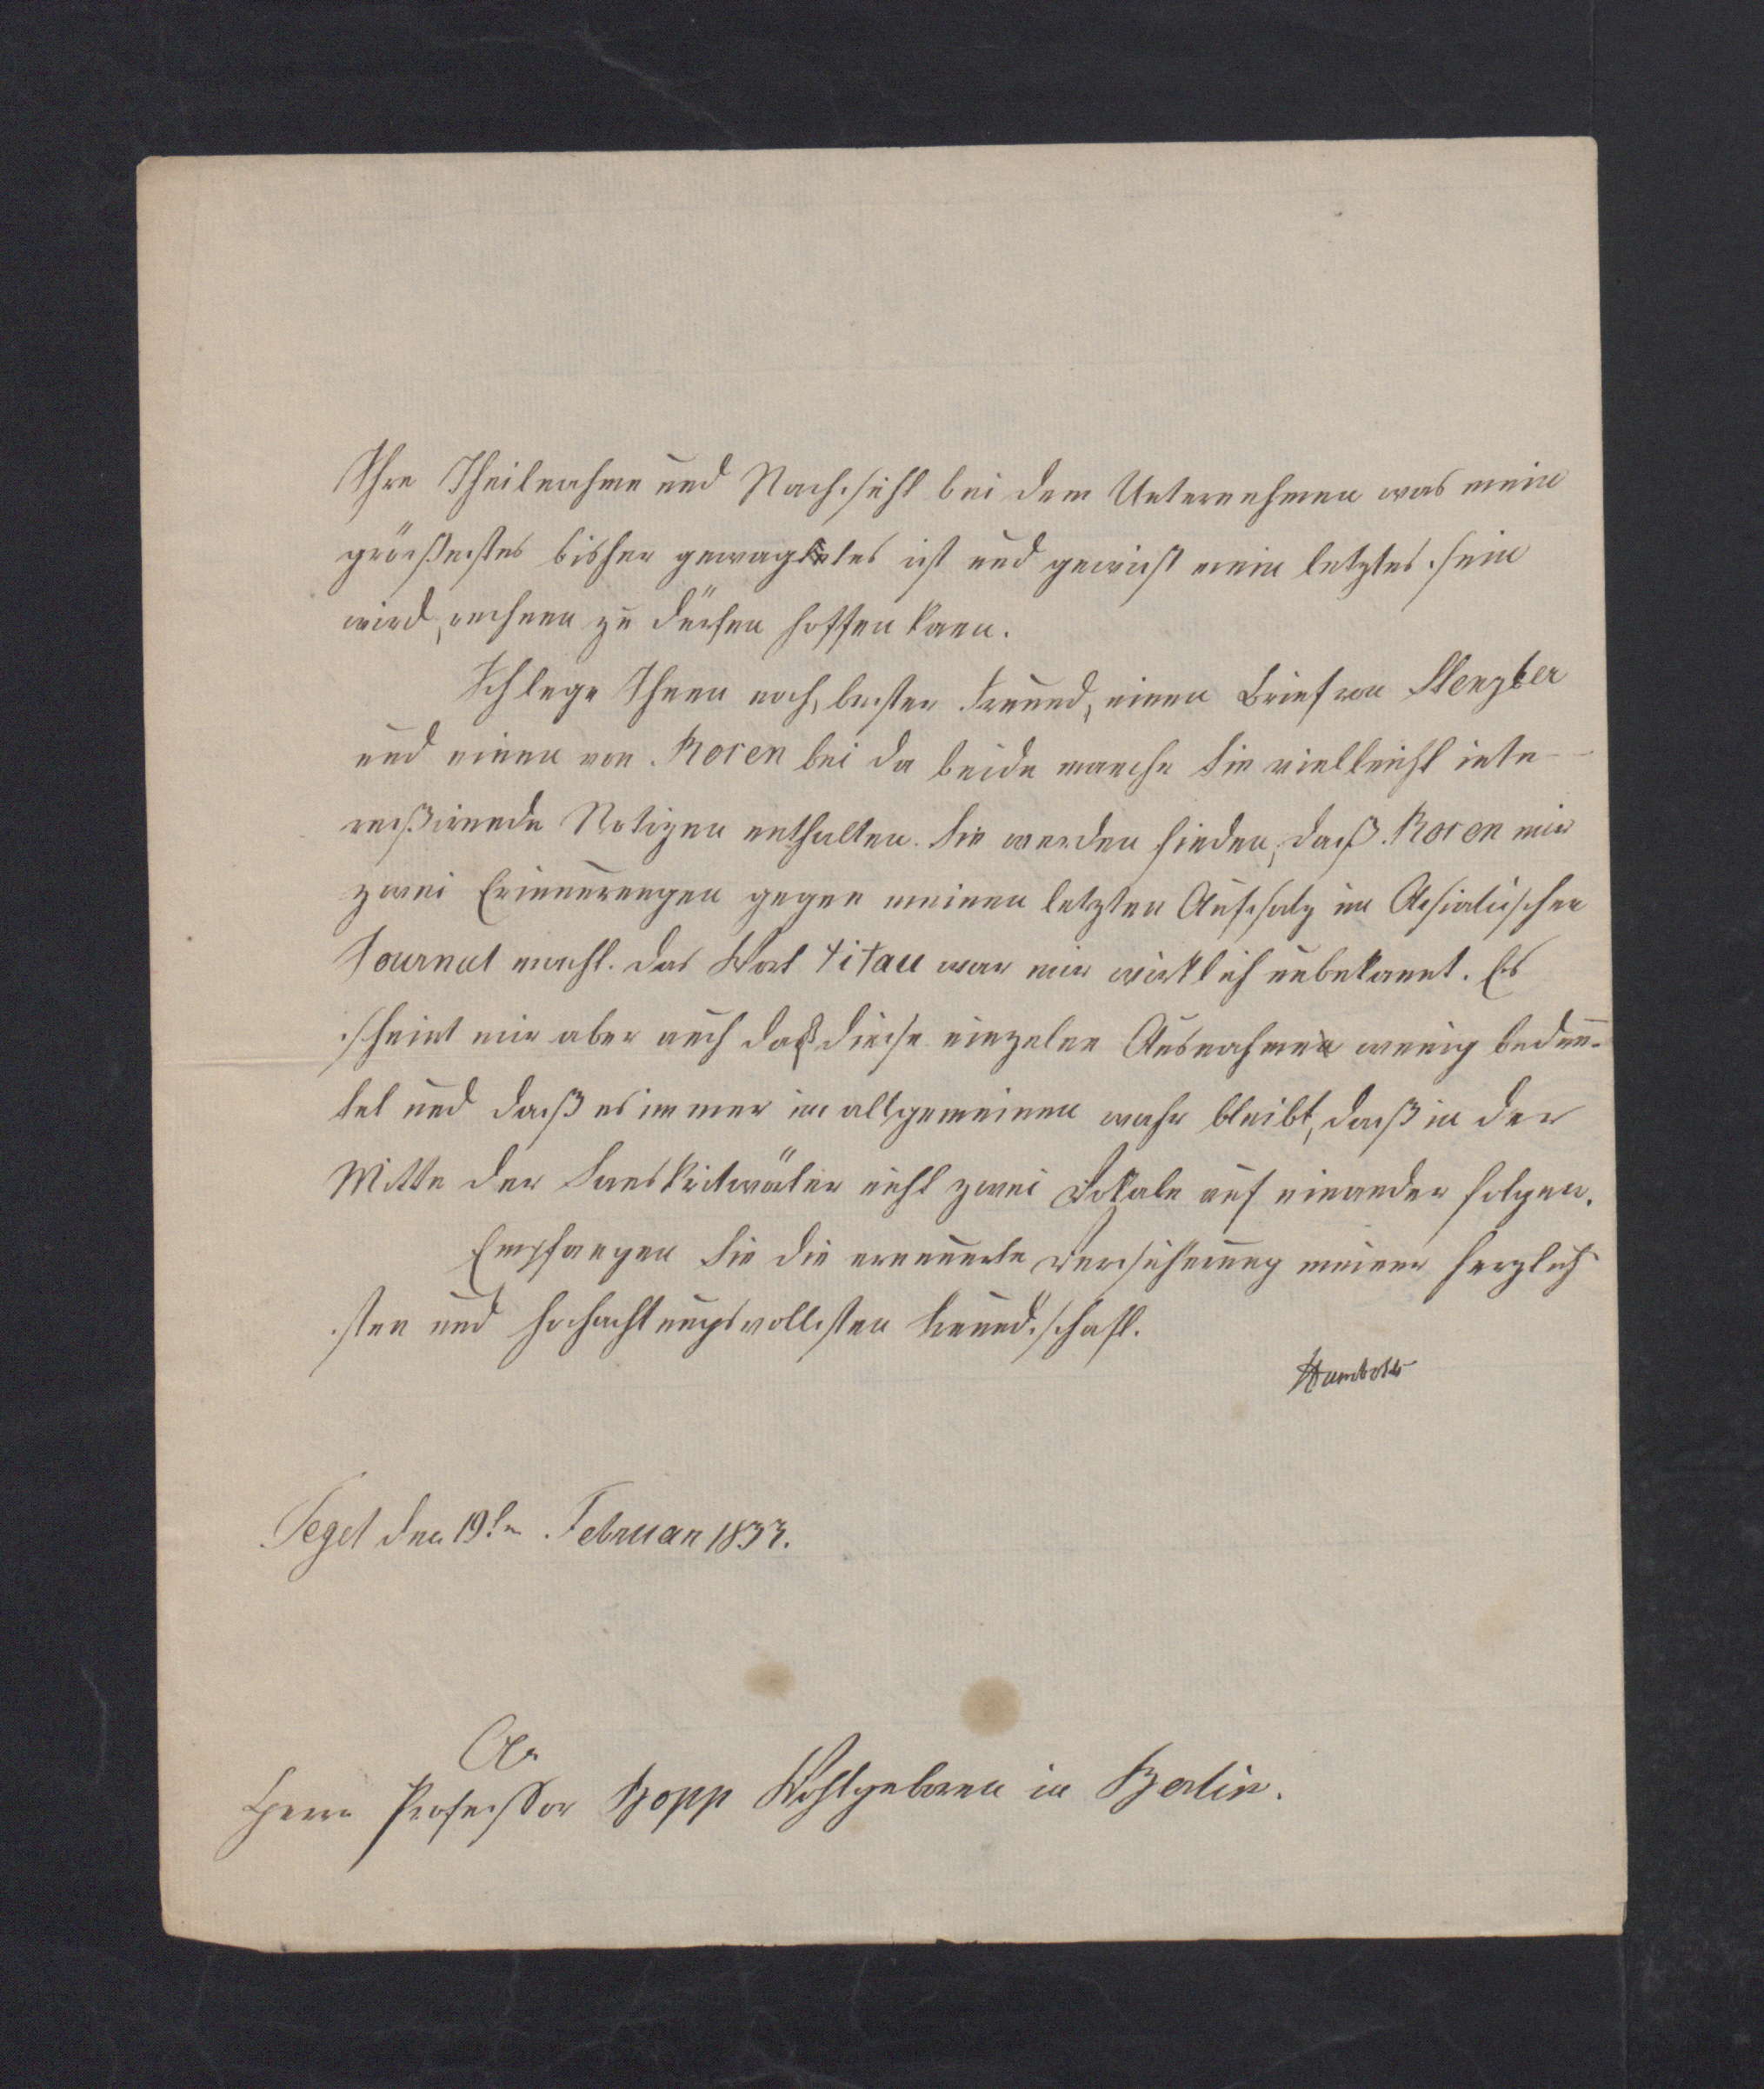 Ihre Theilnahme und Nachsicht bei dem Unternehmen was mein
größestes bisher gewagtes ist und gewiß mein letztes sein
wird, rechnen zu dürfen hoffen kann.
Ich lege Ihnen noch, bester Freund, einen Brief von Stenzler
und einen von Rosen bei da beide manche Sie vielleicht inte-
reßirende Notizen enthalten. Sie werden finden, daß Rosen mir
zwei Erinnerungen gegen meinen letzten Aufsatz im Asiatischen
Journal macht. Das Wort titau war mir wirklich unbekannt. Es
scheint mir aber auch daß diese einzelne Ausnahme wenig bedeu-
tet und daß es immer im allgemeinen wahr bleibt, daß in der
Mitte der Sanskritwörter nicht zwei Vokale auf einander folgen.
Empfangen Sie die erneuerte Versicherung meiner herzlich
sten und hochachtungsvollsten Freundschaft.
Humboldt
Tegel den 19ten Februar 1833.
An
Herrn Professor Bopp Wohlgeboren in Berlin.